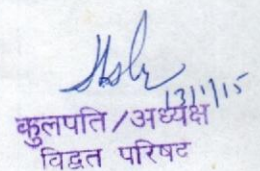 13/1/15
कुलपति / अध्यक्ष
विद्वत परिषद